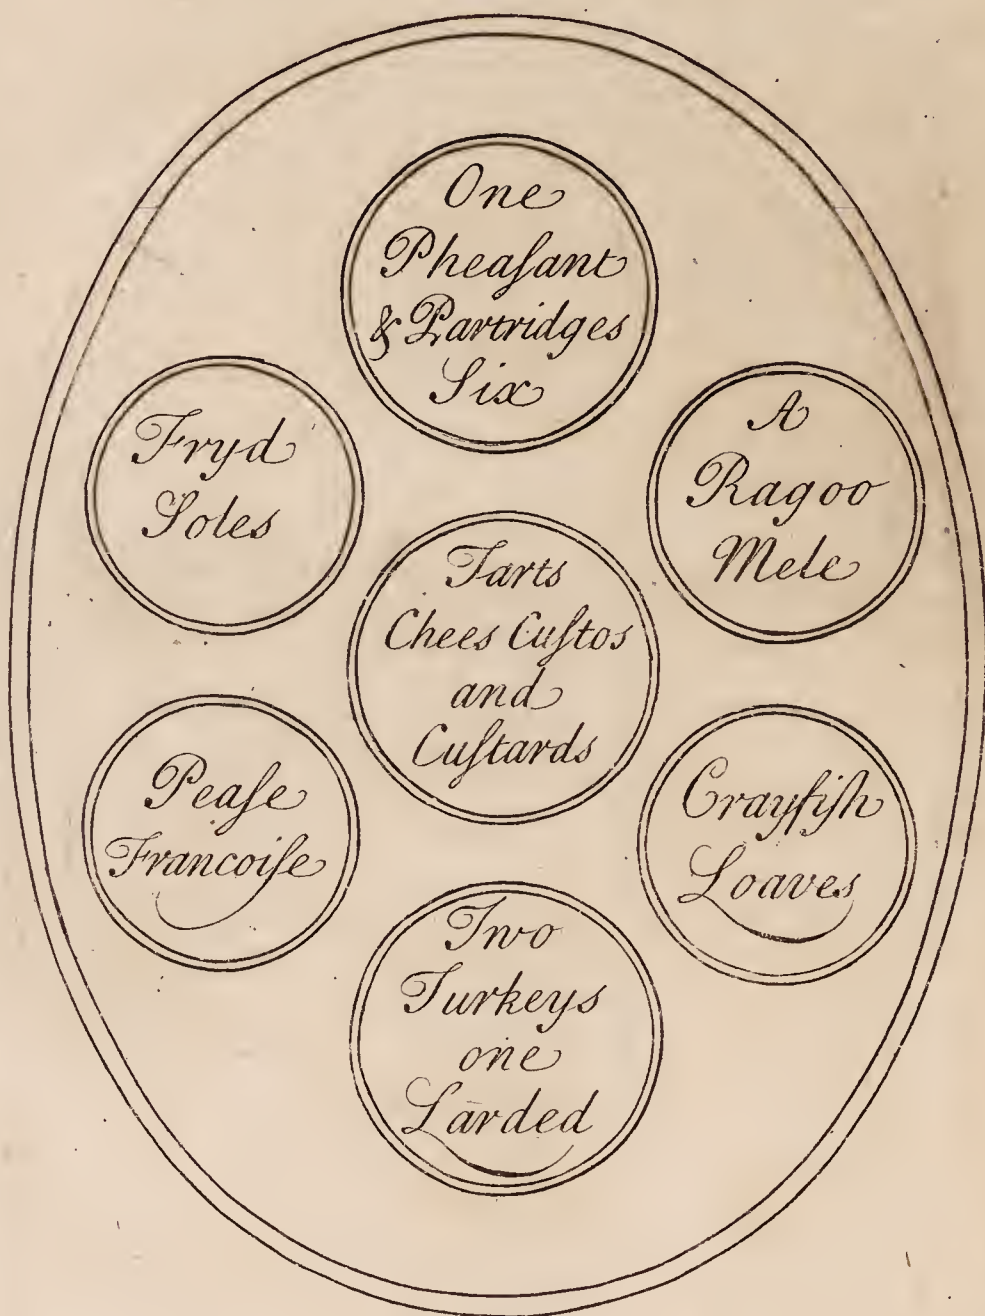 One
Pheaſant
& Partridges
Six
Fryd
Soles
A
Ragoo
Mele
Tarts
Chees Cuſtos
and
Cuſtards
Peaſe
Francoiſe
Crayfiſh
Loaves
Two
Turkeys
one
Larded